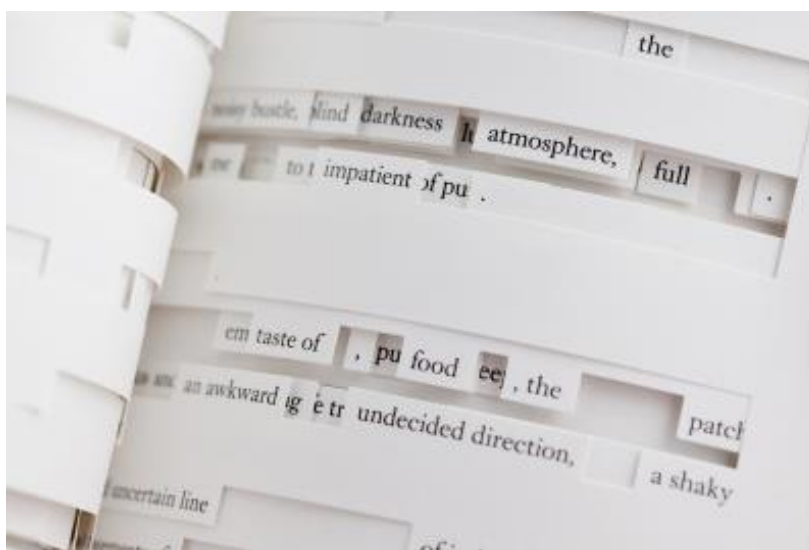 the
bustle, blind darkness atmosphere, full .
me to t impatient of pu .
em taste of , pu food ee , the patch
an awkward ig e tr undecided direction, a shaky
uncertain line